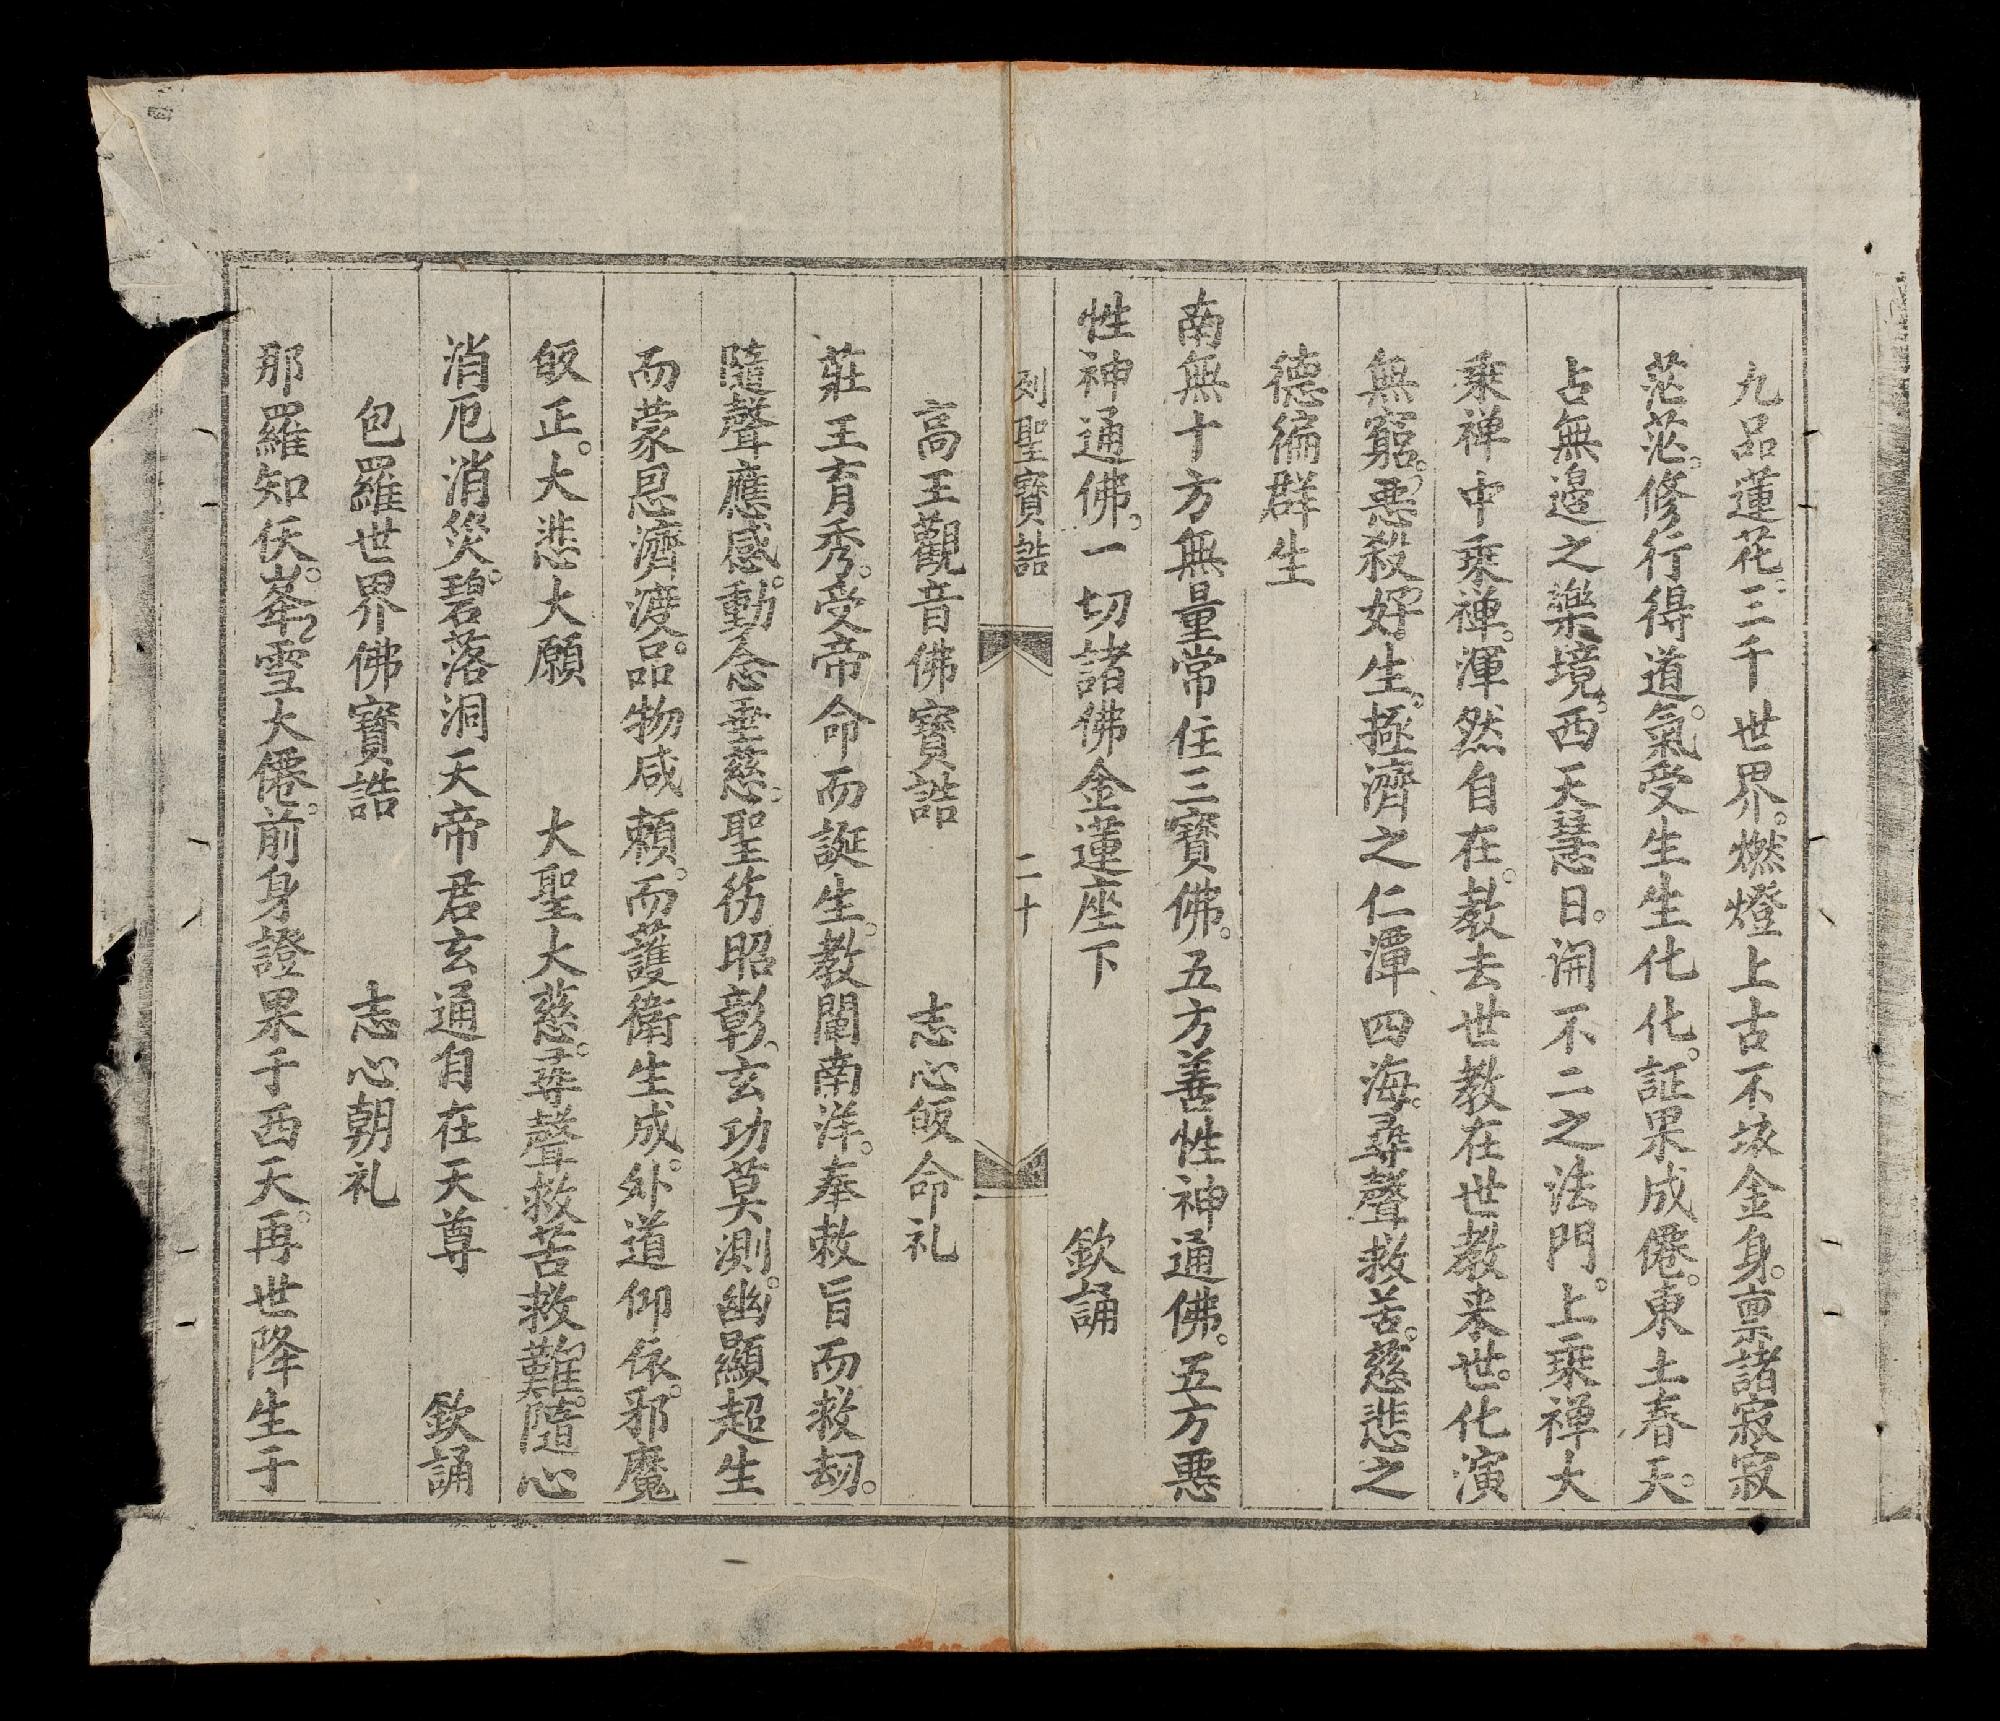 九品蓮花。三千世界。燃燈上古不垓金身。禀諸寂寂
茫茫。修行得道。氣受生生化化。証果成僊。東土春天。
占無邉之樂境。西天慧日。開不二之法門。上乘禅大
乘禅中乘禅。渾然自在。教去世教在世教来世。化演
無窮。惡殺好生。拯濟之仁潭四海。尋聲救苦。慈悲之
德徧群生
南無十方無量常住三寶佛。五方善性神通佛。五方惡
性神通佛。一切諸佛金蓮座下　欽誦
列聖寶誥　二十
高王觀音佛寶誥　志心皈命礼
莊王育秀。受帝命而誕生。教闡南洋。奉敕旨而救劫。
隨聲應感。動念垂慈。聖芴昭彰。玄功莫測。幽顯超生
而蒙恩濟渡。品物咸頼。而護衛生成。外道仰依。邪魔
皈正。大悲大願　大聖大慈。尋聲救苦救難。隨心
消厄消災。碧落洞天帝君玄通自在天尊　欽誦
包羅世界佛寶誥　志心朝礼
那羅知仸。峯雪大僊。前身證果于西天。再世降生于